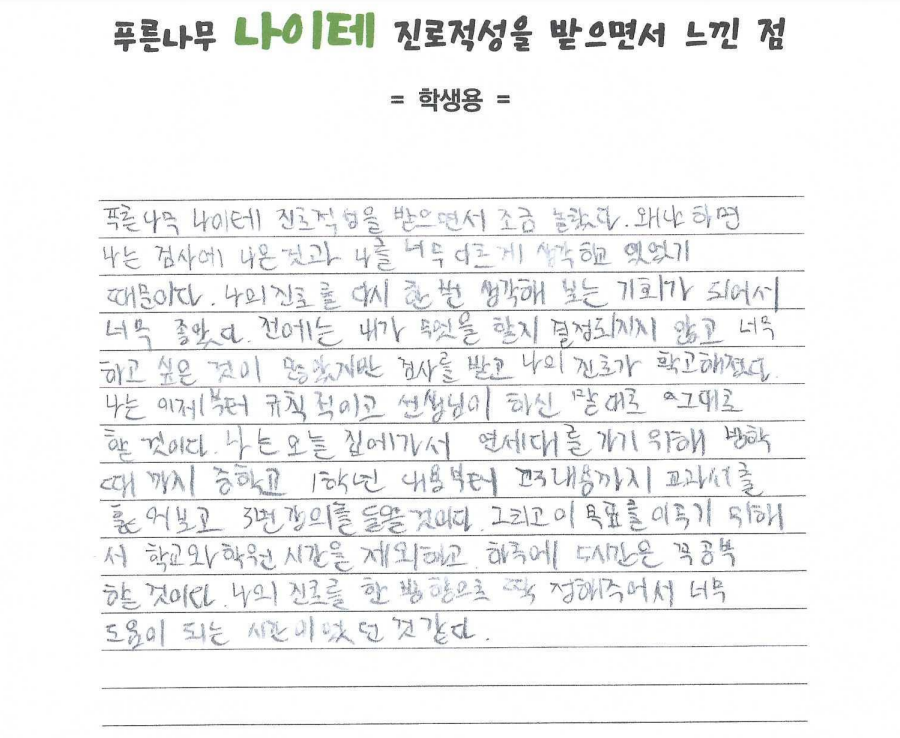 푸른나무 나이테 진로적성을 받으면서 느낀 점
= 학생용 =
푸른나무 나이테 진로적성을 받으면서 조금 놀랐다. 왜냐하면
나는 검사에 나온것과 나를 너무 다르게 생각하고 있었기
때문이다. 나의진로를 다시 한 번 생각해 보는 기회가 되어서
너무 좋았다. 전에는 내가 무엇을 할지 결정되지지 않고 너무
하고 싶은 것이 많았지만 검사를 받고 나의 진로가 확고해졌다.
나는 이제부터 규칙적이고 선생님이 하신 말대로 그대로
할 것이다. 나는 오늘 집에가서 연세대를 가기 위해 방학
때 까지 중학교 1학년 내용부터 내용까지 교과서를
훑어보고 3번 강의를 들을것이다. 그리고 이 목표를 이루기 위해
서 학교와 학원 시간을 제외하고 하루에 5시간은 꼭 공부
할 것이다. 나의 진로를 한 방향으로 딱 정해주어서 너무
도움이 되는 시간이었던 것 같다.